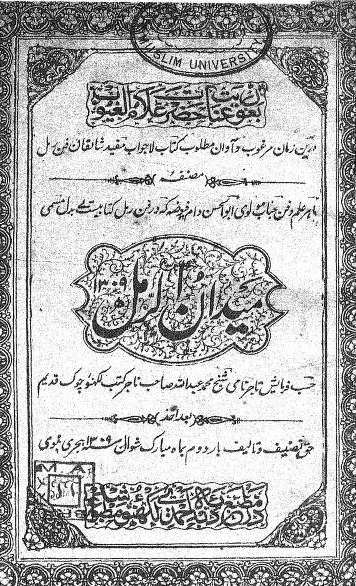 ALIGARH
MUSLIM UNIVERSITY
بعون عنایت حضرت علام الغیوب
درین زمان مرغوب و آوان مطلوب کتاب لاجواب مفید شائقان فن رمل
مصنفہ
ماہر علم و فن جناب مولوی ابو الحسن دام فیوضہ کہ در فن رمل کتابیست بے بدل مسمی
میدان الرمل
۱۳۰۹
حسب فرمایش تاجر نامی شیخ محمد عبداللہ صاحب تاجر کتب لکھنؤ چوک قدیم
بعد اخذ
حق تصنیف و تالیف بار دوم بماہ مبارک شوال ۱۳۰۹ ہجری نبوی
M.A.